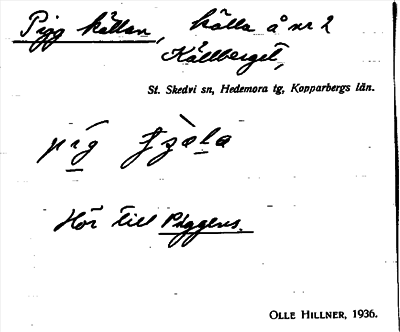 Pigg källan, källa å nr 2
Källberget,
St. Skedvi sn, Hedemora tg, Kopparbergs län.
Hör till Piggens.
OLLE HILLNER, 1936.